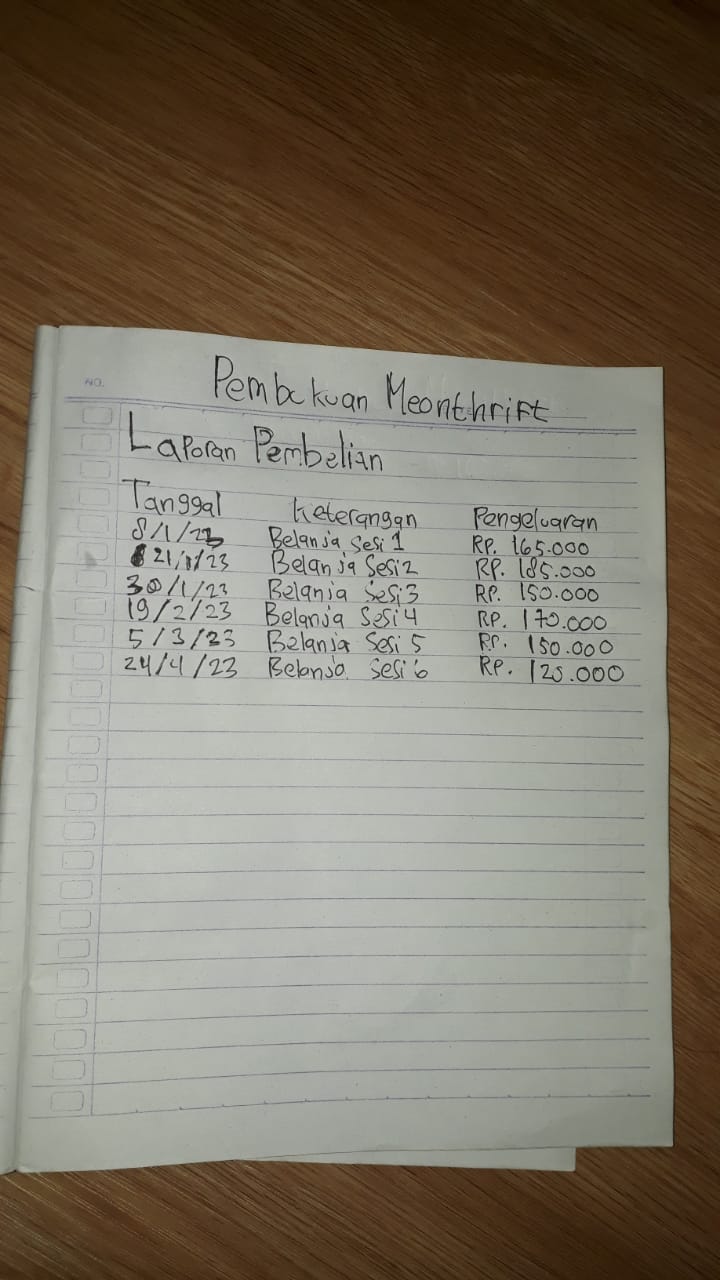 NO.
Pembukuan Meonthrift
Laporan Pembelian
Tanggal Keterangan Pengeluaran
8/1/23 Belanja Sesi 1 RP. 165.000
21/1/23 Belanja Sesi 2 RP. 185.000
30/1/23 Belanja Sesi 3 RP. 150.000
19/2/23 Belanja Sesi 4 RP. 170.000
5/3/23 Belanja Sesi 5 RP. 150.000
24/4/23 Belanja Sesi 6 RP. 125.000